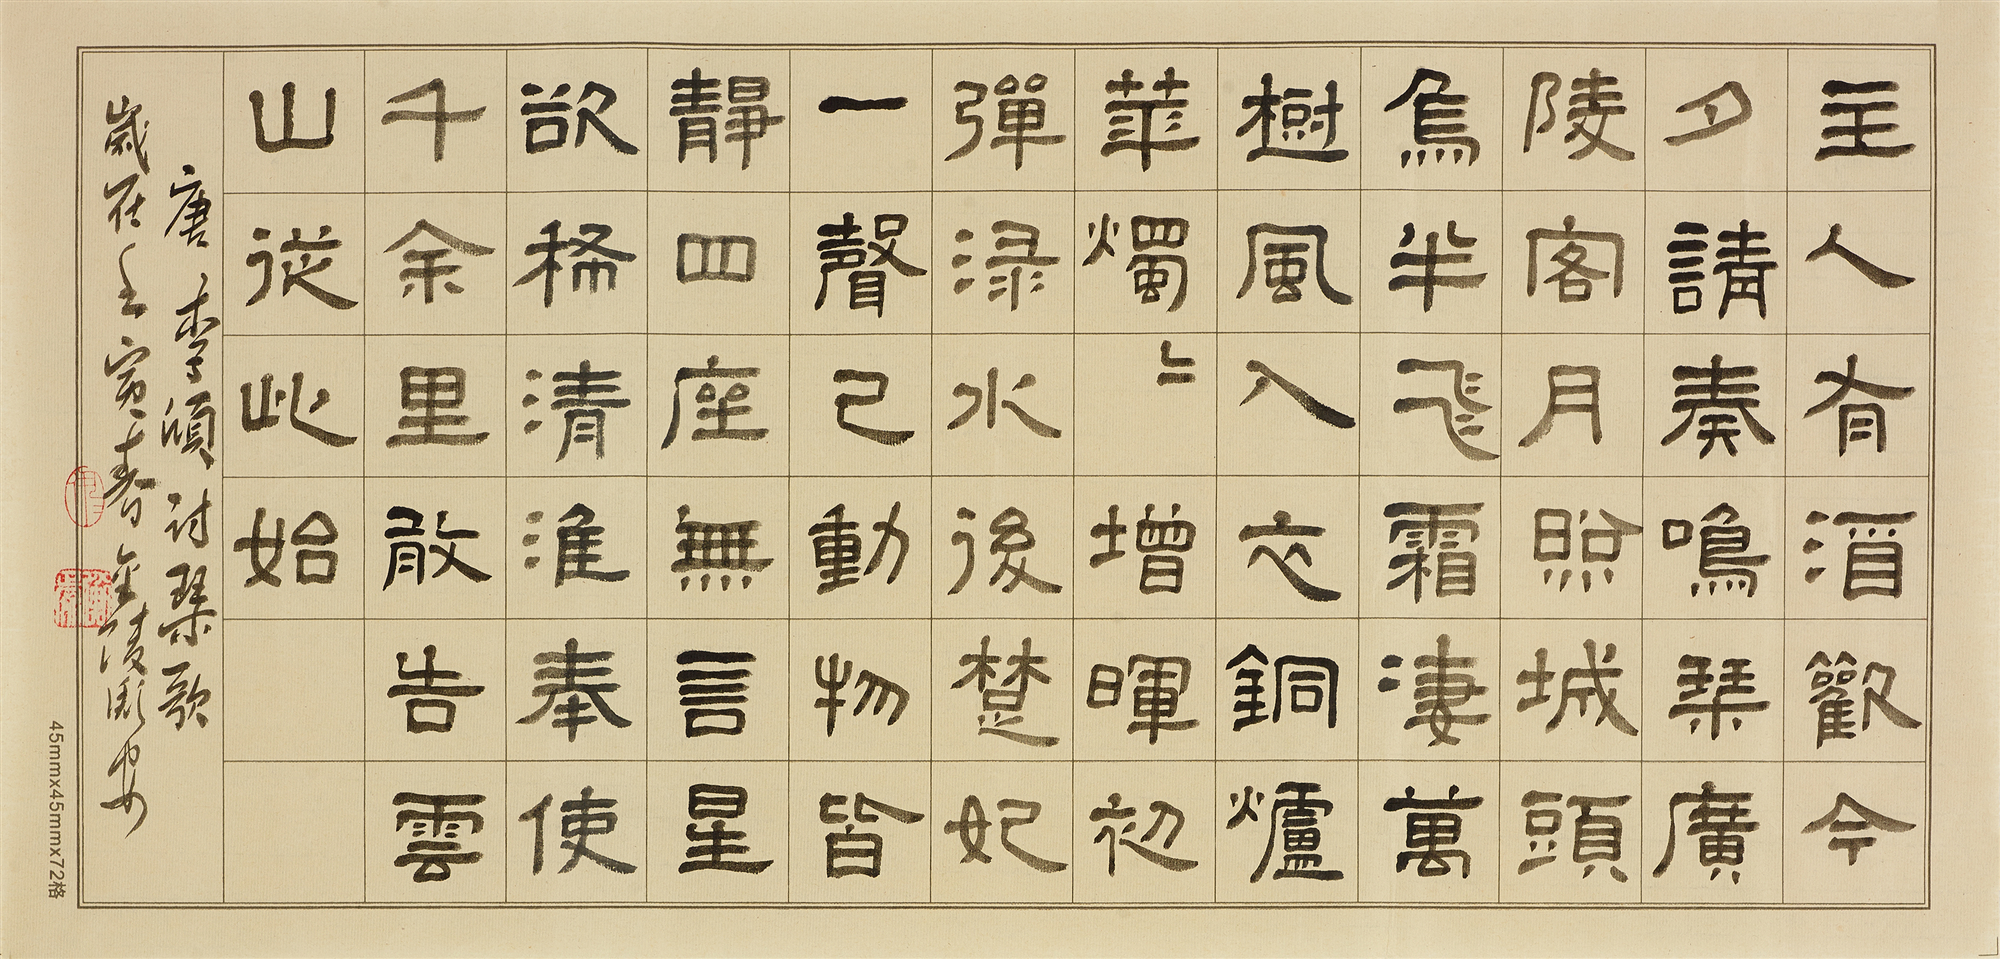 主人有酒歡今
夕請奏鳴琴廣
陵客月照城頭
烏半飛霜淒萬
樹風入衣銅爐
華燭〻增暉初
彈淥水後楚妃
一聲已動物皆
靜四座無言星
欲稀清淮奉使
千余里敢告雲
山從此始
唐李頎詩琴歌
歲在壬寅春金陵
45mmx45mmx72格